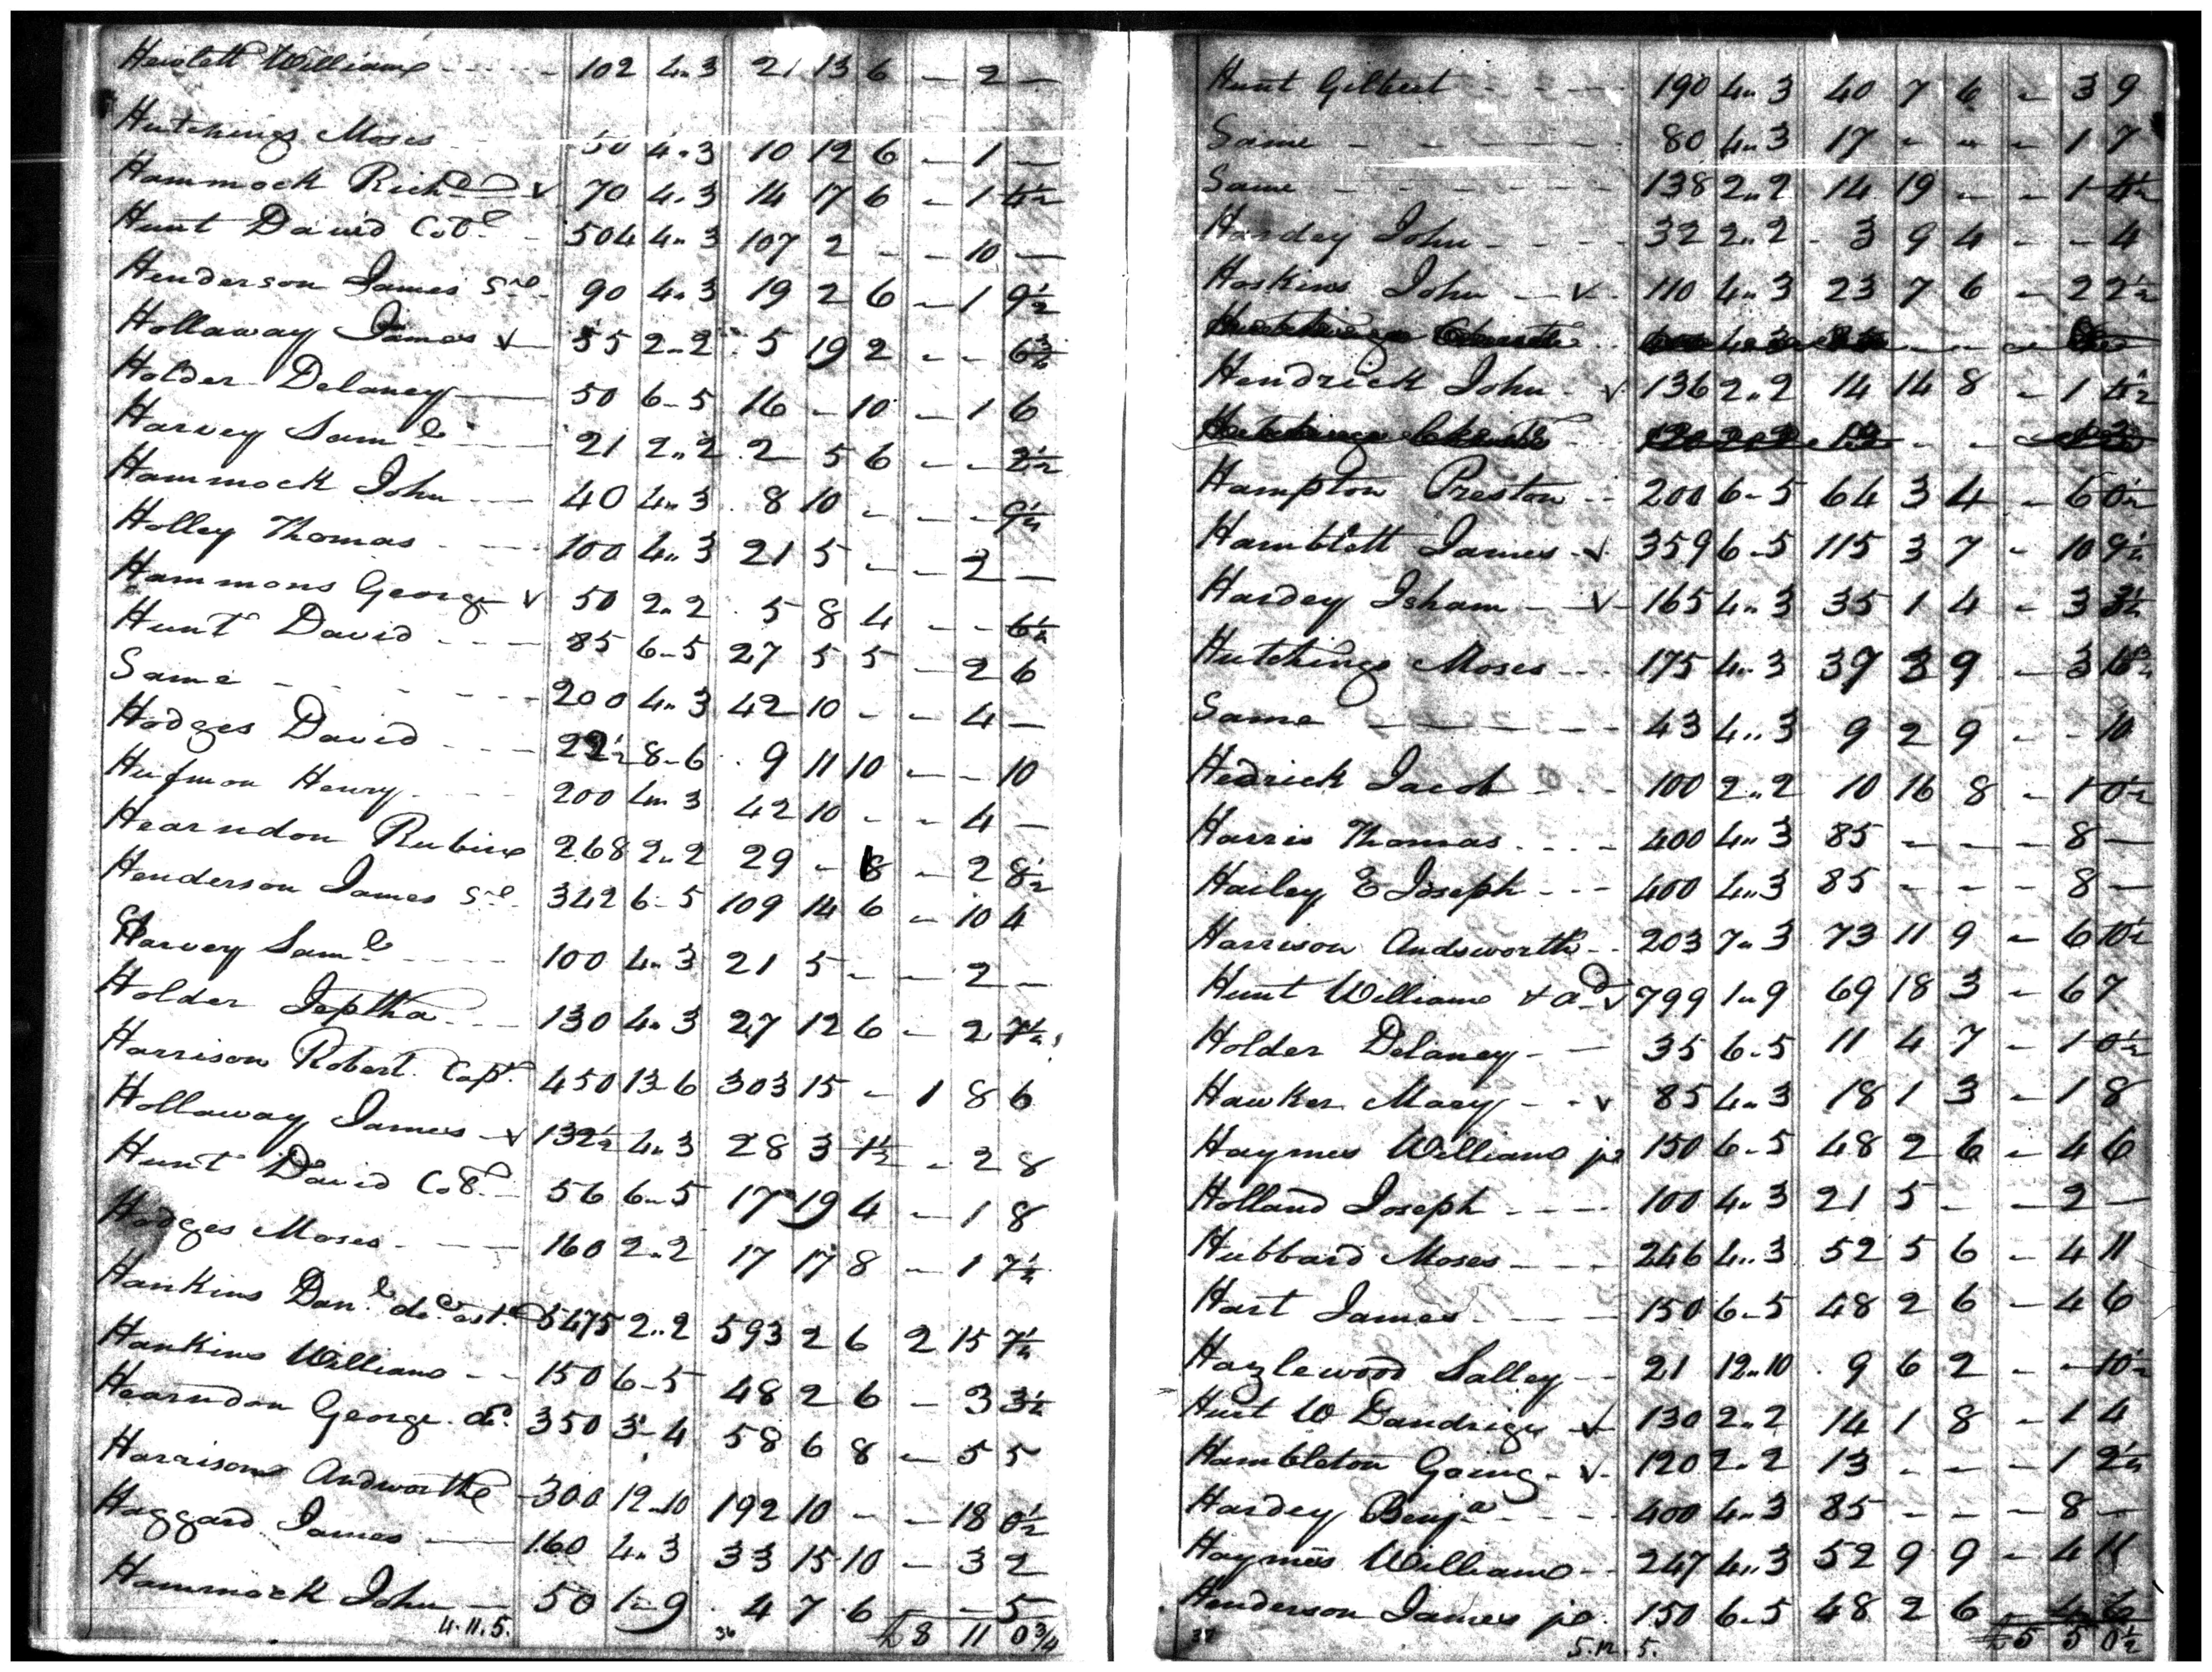 Hewlett William - - - - - 102 4..3 21 13 6 - 2 -
Hutchings Moses 50 4..3 10 12 6 - 1 -
Hammock Richd v 70 4..3 14 17 6 - 1 4½
Hunt David Col. - 504 4..3 107 2 - - 10 -
Henderson James Snr. 90 4..3 19 2 6 - 1 9½
Hollaway James v 55 2..2 5 19 2 - - 6½
Holder Delaney 50 6-5 16 - 10 - 1 6
Harvey Saml. 21 2..2 2 5 6 - - 2½
Hammock John 40 4..3 8 10 - - - 9½
Holley Thomas 100 4..3 21 5 - - 2 -
Hammons George v 50 2..2 5 8 4 - - 6½
Hunt David - - - 85 6-5 27 5 5 - 2 6
Same - - - - 200 4..3 42 10 - - 4 -
Hodges David - - - 22½ 8-6 9 11 10 - - 10
Hufmon Henry - - 200 4..3 42 10 - - 4 -
Hearndon Rubin 268 2..2 29 - 8 - 2 8½
Henderson James Sr. 342 6-5 109 14 6 - 10 4
Harvey Saml - - - 100 4..3 21 5 - - 2 -
Holder Jeptha - - - 130 4..3 27 12 6 - 2 7½
Harrison Robert Capt. 450 13-6 303 15 - 1 8 6
Hollaway James v 132½ 4..3 28 3 1½ - 2 8
Hunt David Col. - 56 6-5 17 19 4 - 1 8
Hodges Moses - - - 160 2..2 17 17 8 - 1 7½
Hankins Danl. decd est. 5475 2..2 593 2 6 2 15 7½
Hankins William - - 150 6-5 48 2 6 - 3 3½
Hearndon George dd. 350 3-4 58 6 8 - 5 5
Harrison Andworth 300 12..10 192 10 - - 18 0½
Haggard James 160 4..3 33 15 10 - 3 2
Hammock John 50 1-9 4 7 6 - - 5
4.11.5. 36 £8 11 0¾
Hunt Gilbert - - - 190 4..3 40 7 6 - 3 9
Same - - - - 80 4..3 17 - - - 1 7
Same - - - - 138 2..2 14 19 - - 1 4½
Hardey John - - - 32 2..2 3 9 4 - - 4
Hoskins John - v 110 4..3 23 7 6 - 2 2½
Hendrick John - v 136 2..2 14 14 8 - 1 4½
Hampton Preston - 200 6-5 64 3 4 - 6 0½
Hamblett James v 359 6-5 115 3 7 - 10 9½
Hardey Isham - v 165 4..3 35 1 4 - 3 3½
Hutchings Moses - - - 175 4..3 37 3 9 - 3
Same - - - - 43 4..3 9 2 9 - - 10
Hedrick Jacob - - - 100 2..2 10 16 8 - 1 0½
Harris Thomas - - - - 400 4..3 85 - - - 8 -
Hailey E Joseph - - - 400 4..3 85 - - - 8 -
Harrison Andsworth - - 203 7..3 73 11 9 - 6 10½
Hunt William + a v 799 1..9 69 18 3 - 6 7
Holder Delaney - - 35 6-5 11 4 7 - 1 0½
Hawker Mary - - v 85 4..3 18 1 3 - 1 8
Haymes William jr 150 6-5 48 2 6 - 4 6
Holland Joseph - - - - 100 4..3 21 5 - - 2 -
Hubbard Moses - - - 246 4..3 52 5 6 - 4 11
Hart James - - - - 150 6-5 48 2 6 - 4 6
Hazlewood Salley - - 21 12..10 9 6 2 - - 10½
Hurt W Dandrige v 130 2..2 14 1 8 - 1 4
Hambleton Going - v 120 2..2 13 - - - 1 2½
Hardey Benja - - - - 400 4..3 85 - - - 8 -
Haymes William - - 247 4..3 52 9 9 - 4 11
Henderson James jr. 150 6-5 48 2 6 4 6
37 5.12.5. £5 5 0½